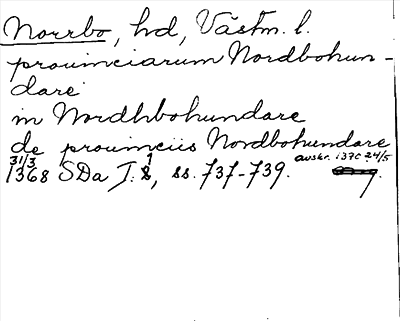 Norrbo, hd, Västm. l.
prouinciarum Nordbohun-
dare
in Nordhbohundare
de prouinciis Nordbohundare
avskr. 1370 24/5
31/3 1368 SDa I: 1, ss. 737-739.